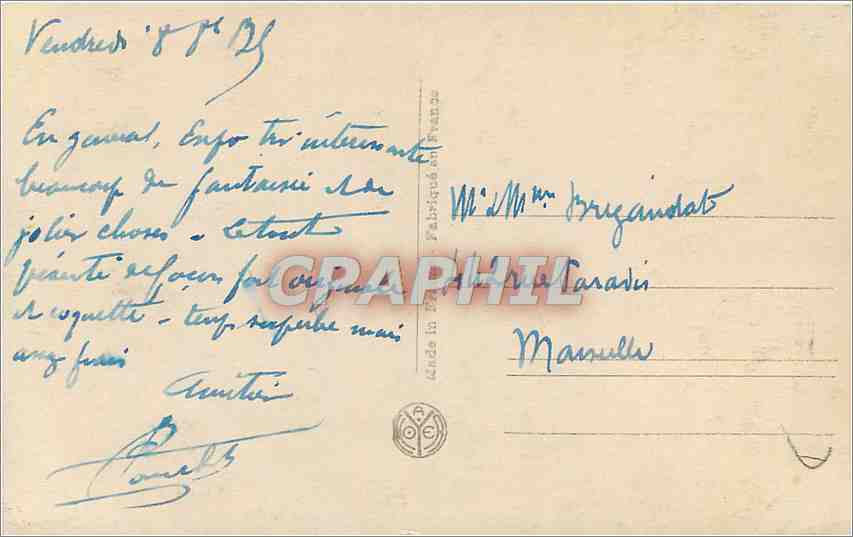 Vendredi 8
En général, Expo très intéressante
beaucoup de fantaisie et de
jolies choses - Le tout
présenté de façon fort originale
et coquette - temps superbe mais
assez frais
Amitiés
Made in France Fabriqué en France
CPARPHIL
Mr & Mme Brigandat
rue Paradis
Marseille